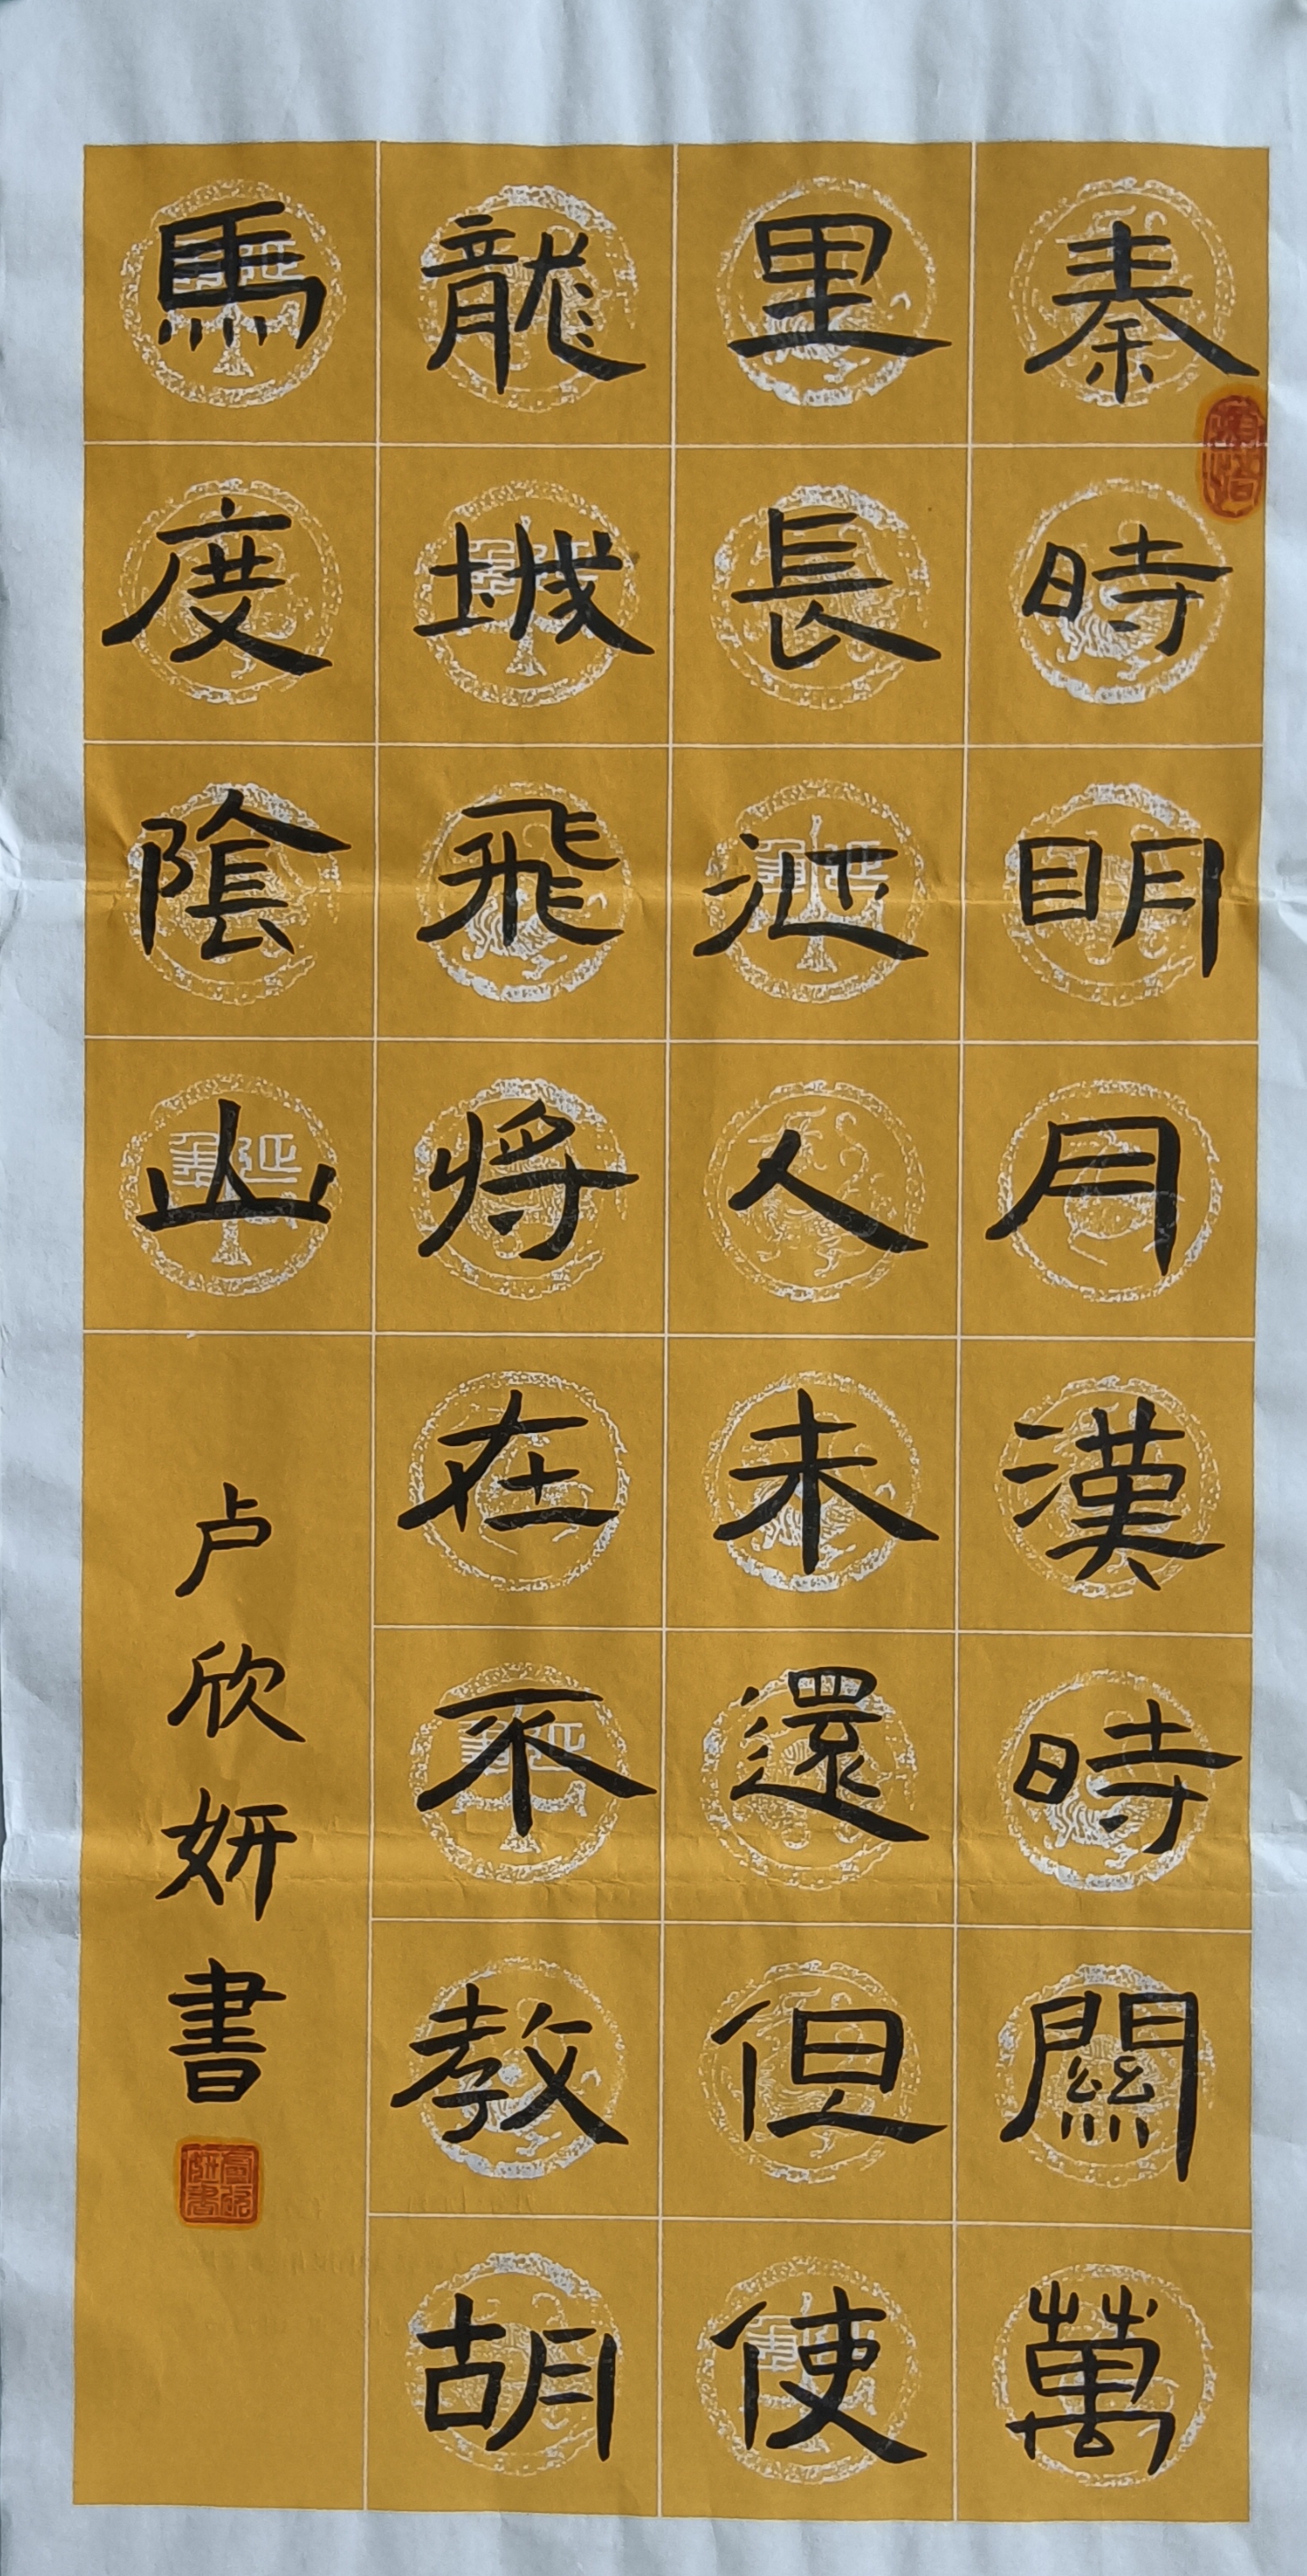 秦時明月漢時關萬
里長征人未還但使
龍城飛將在不教胡
馬度陰山
卢欣妍書